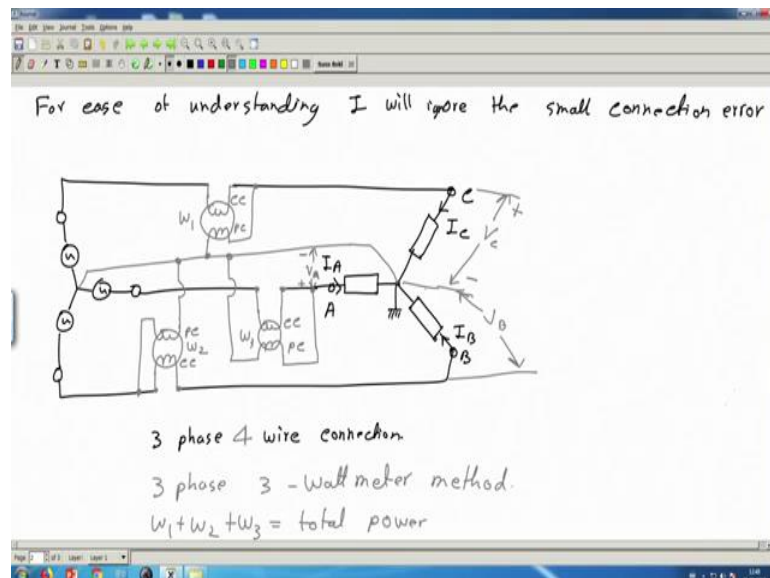 File Edit View Journal Tools Options Help
For ease of understanding I will ignore the small connection error
W1
CC
PC
C
+
IC
VC
-
- VA +
IA
A
PC
W2
CC
W1
CC
PC
IB
B
VB
3 phase 4 wire connection
3 phase 3 - Wattmeter method.
W1 + W2 + W3 = total power
Page 2 of 3 Layer: Layer 1